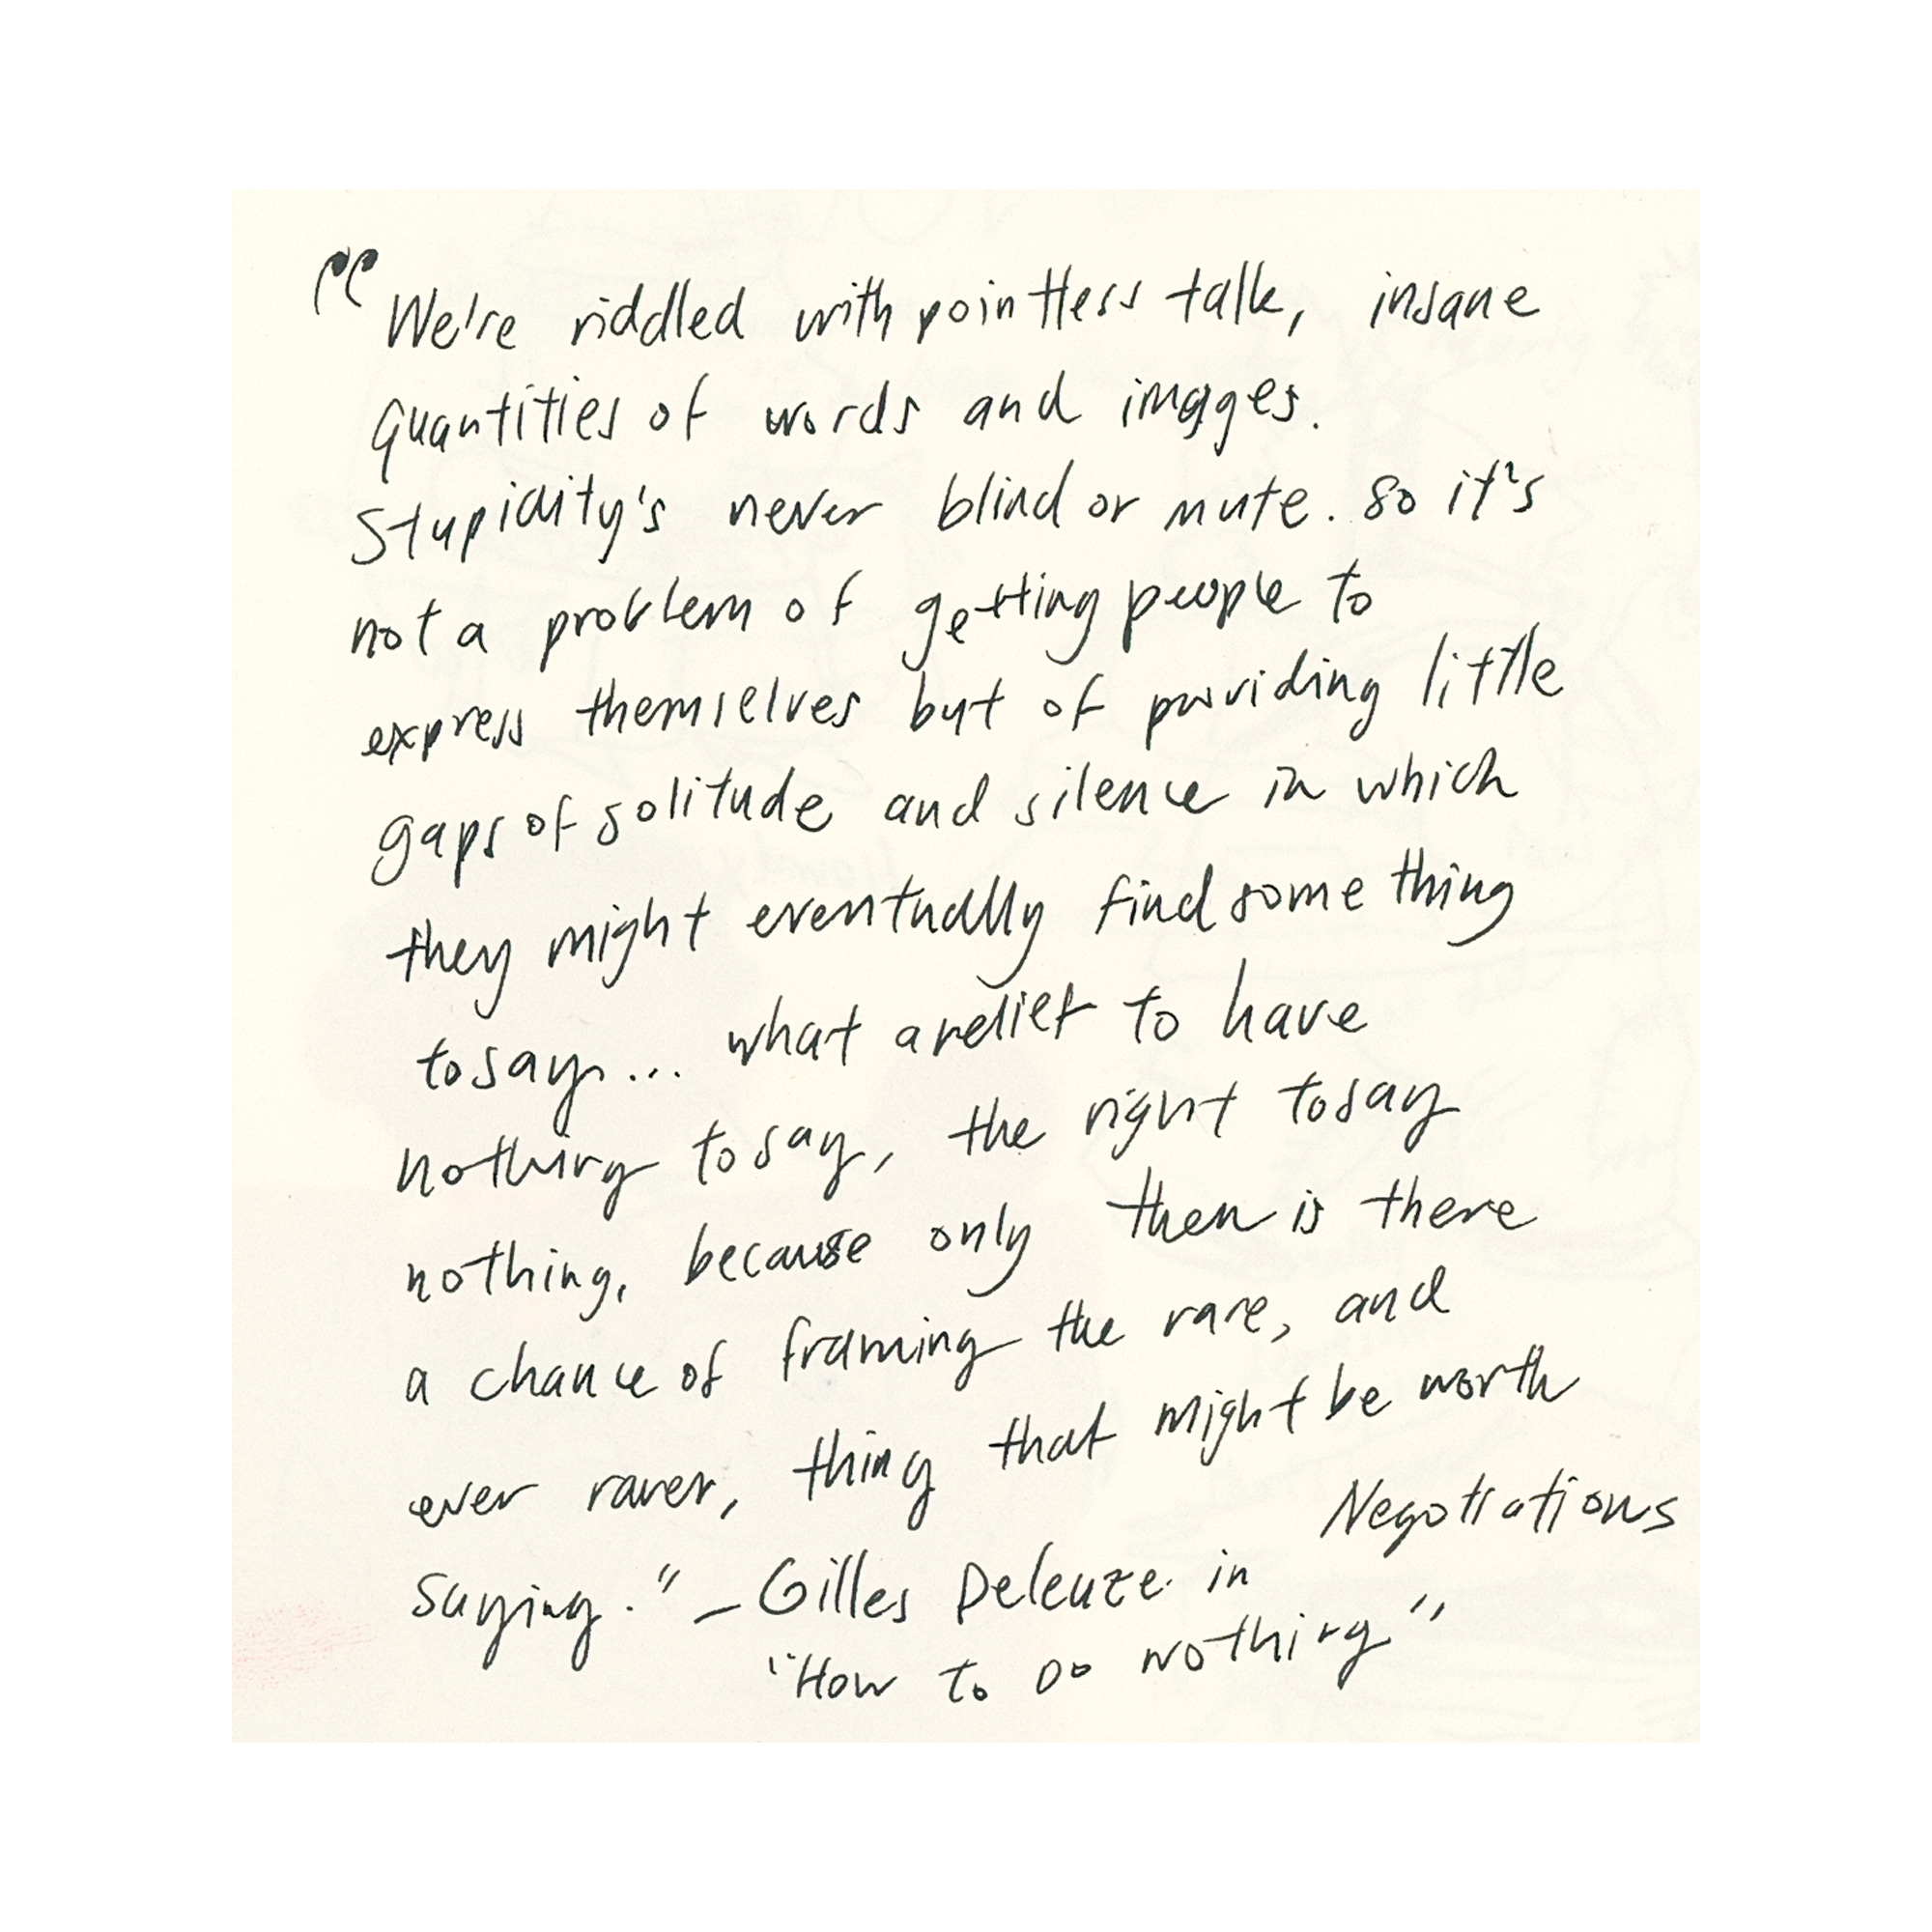 "We're riddled with pointless talk, insane
quantities of words and images.
Stupidity's never blind or mute. so it's
not a problem of getting people to
express themselves but of providing little
gaps of solitude and silence in which
they might eventually find something
to say... what a relief to have
nothing to say, the right to say
nothing, because only then is there
a chance of framing the rare, and
ever rarer, thing that might be worth
saying." - Gilles Deleuze in Negotiations
"How to Do Nothing"